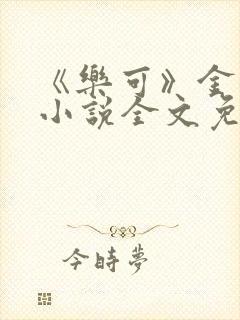 《樂可》金
小說全文免
今時夢